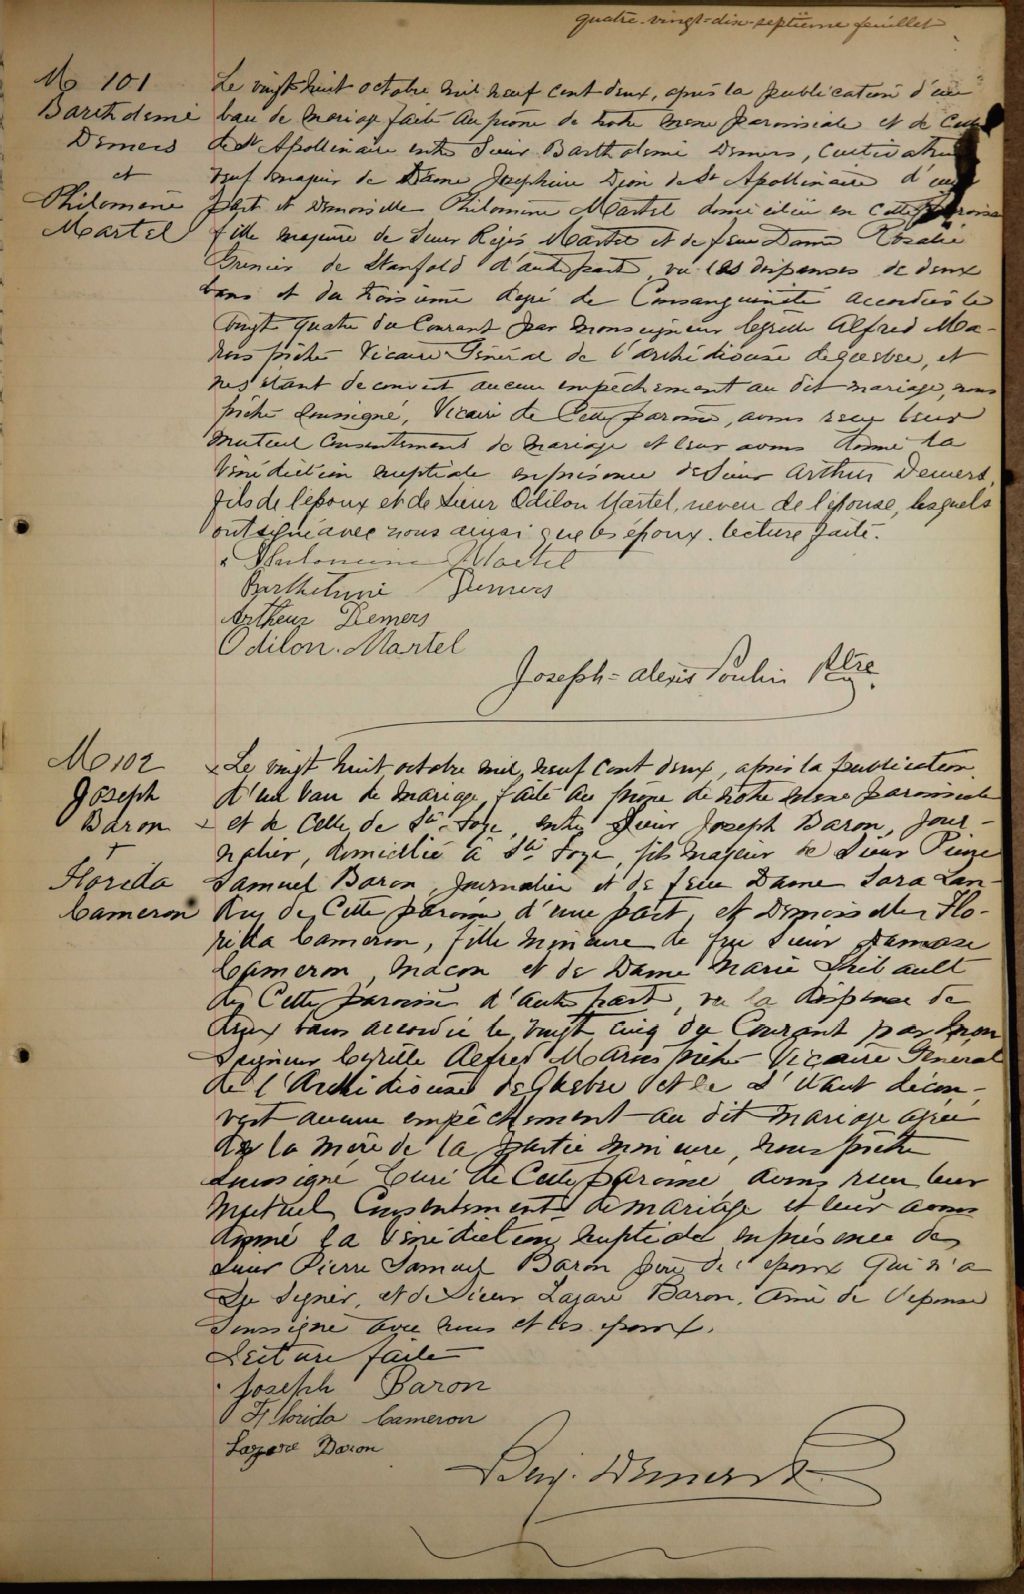 quatre-vingt-dix-septième feuillet
M 101
Barthelemi
Demers
et
Philomène
Martel
Le vingt huit octobre mil neuf cent deux, après la publication d'un
ban de mariage faite au prône de notre messe paroissiale et de celle
de St Apollinaire entre Sieur Barthelemi Demers, Cultivateur
veuf majeur de Dame Josephine Dion de St Apollinaire d'une
part et Demoiselle Philomène Martel domiciliée en cette paroisse
fille majeure de Sieur Régis Martel et de feue Dame Rosalie
Grenier de Stanfold d'autre part, vu les dispenses de deux
bans et du troisième degré de Consanguinité accordées le
vingt quatre du Courant par Monseigneur Cyrille Alfred Ma-
rois prêtre Vicaire Général de l'archidiocèse de Québec, et
ne s'étant découvert aucun empêchement au dit mariage, nous
prêtre soussigné, Vicaire de Cette paroisse, avons reçu leur
mutuel Consentement de mariage et leur avons donné la
bénédiction nuptiale en présence de Sieur Arthur Demers,
fils de l'époux et de Sieur Odilon Martel, neveu de l'épouse, lesquels
ont signé avec nous ainsi que les époux. Lecture faite.
Philomène Martel
Barthelmie Demers
Artheur Demers
Odilon. Martel
Joseph=Alexis Poulin Ptre
M 102
Joseph
Baron
+
Florida
Cameron
x Le vingt huit octobre mil neuf cent deux, après la publication
d'un ban de mariage, faite au prone de notre messe paroissiale
x et de Celle de Ste-Foye, entre Sieur Joseph Baron, jour-
nalier, domicilié à Ste Foye, fils majeur de Sieur Pierre
Samuel Baron, Journalier et de feue Dame Sara Lan-
dry de Cette paroisse d'une part, et Demoiselle Flo-
rida Cameron, fille mineure de feu Sieur Damase
Cameron, maçon et de Dame Marie Thibault
de Cette paroisse d'autre part, vu la dispense de
deux bans accordée le vingt cinq du Courant par Mon
Seigneur Cyrille Alfred Marois prêtre Vicaire Général
de l'Archidiocèse de Québec et ne s'étant décou-
vert aucun empêchement au dit mariage agréé
de la mère de la partie mineure, nous prêtre
soussigné Curé de Cette paroisse, avons reçu leur
mutuel Consentement de mariage et leur avons
donné la bénédiction nuptiale en présence de
Sieur Pierre Samuel Baron père de l'époux qui n'a
su signer, et de Sieur Lazare Baron, ami de l'épouse
soussigné avec nous et les époux.
Lecture faite
Joseph Baron
Florida Cameron
Lazare Baron
Benj. Demers Ptre